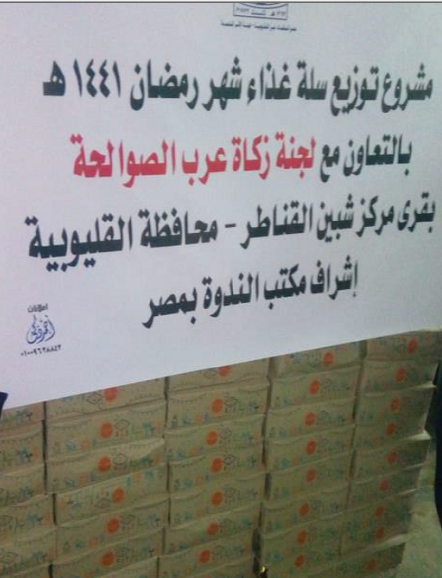 مشروع توزيع سلة غذاء شهر رمضان ١٤٤١ هـ
بالتعاون مع لجنة زكاة عرب الصوالحة
بقرى مركز شبين القناطر - محافظة القليوبية
إشراف مكتب الندوة بمصر